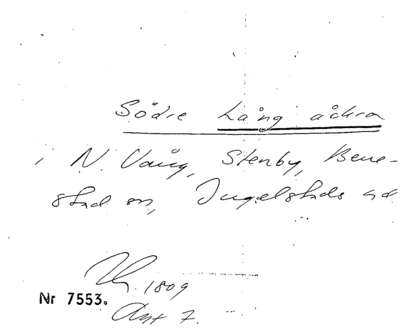 Södre Lång åckra
i N. Vång, Stenby, Bene-
stad sn, Ingelstads hd
1809
Nr 7553.
Akt 7.